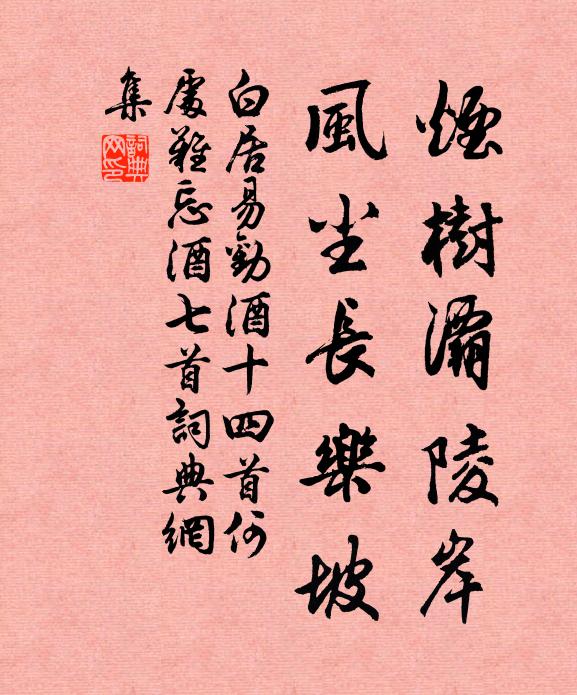 煙樹灞陵岸
風尘長樂坡
白居易勸酒十四首何
處難忘酒七首詞典網
集
詞典
网印